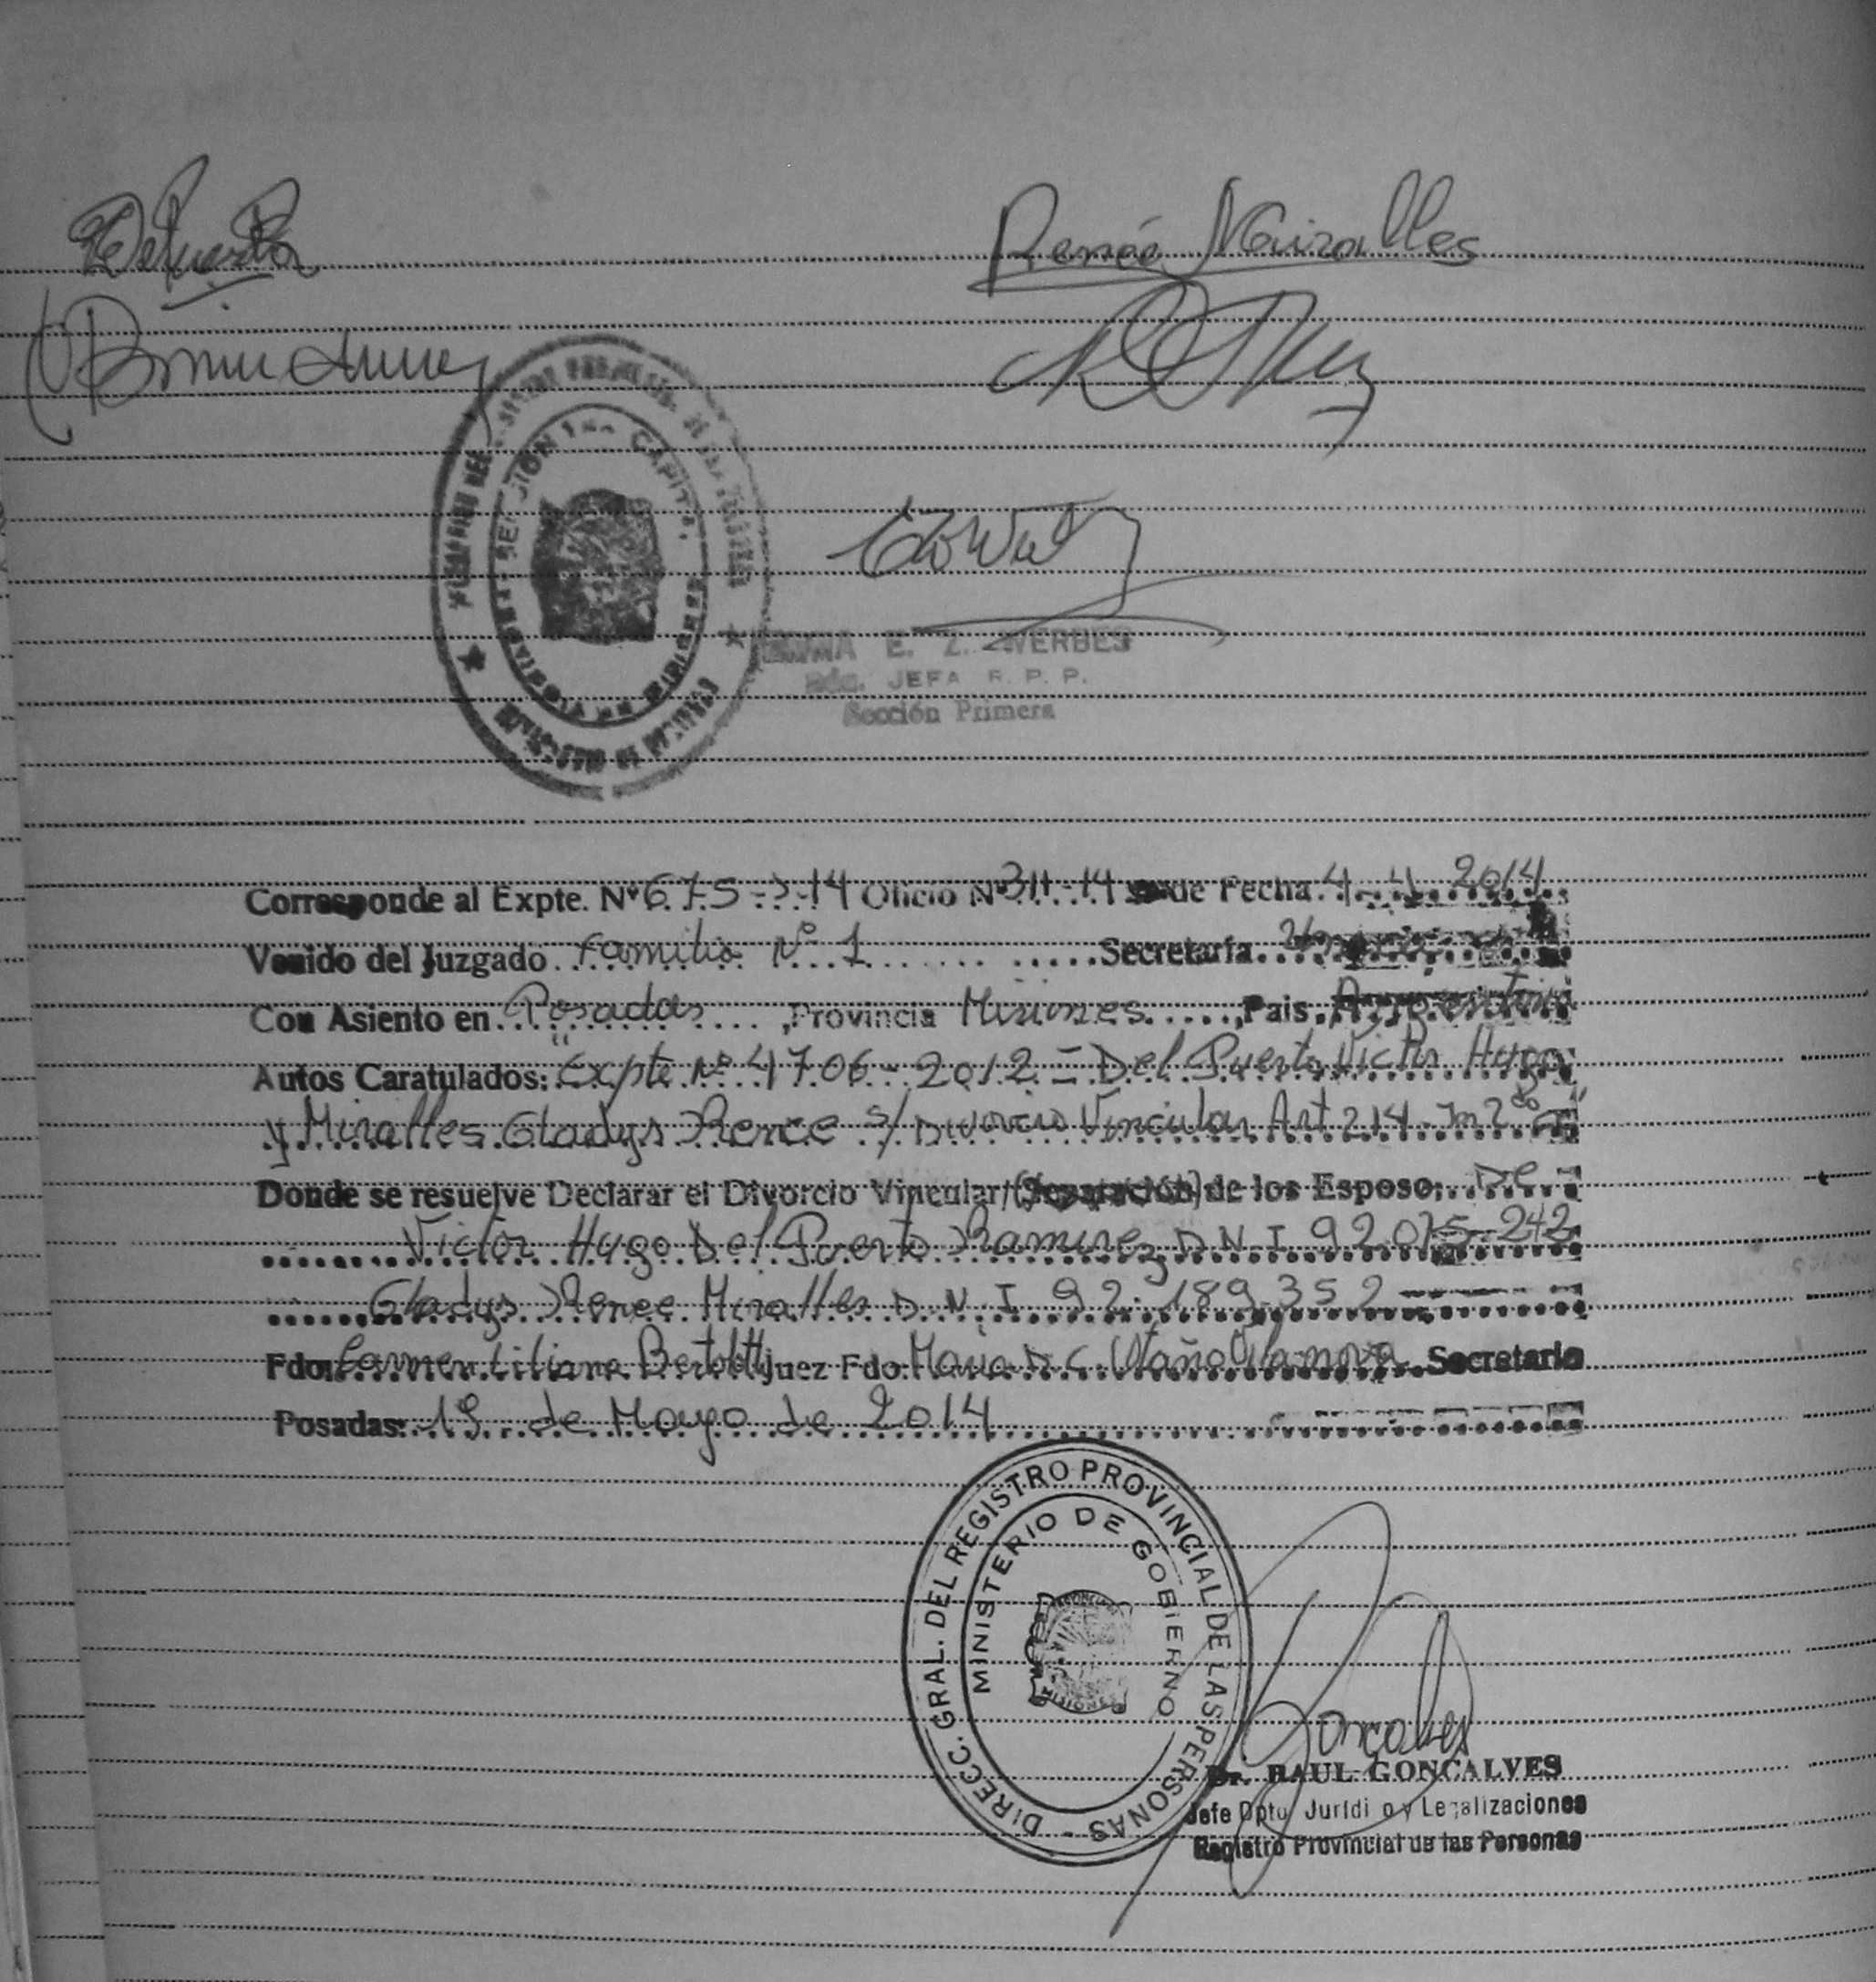 Renée Miralles
EMMA E. Z. WERBES
JEFA R. P. P.
Sección Primera
Corresponde al Expte. Nº 675 - J - 14 Oficio Nº 311 - 14 de Fecha 4 - 4 2014
Venido del Juzgado Familia Nº 1 Secretaría
Con Asiento en Posadas, Provincia Misiones, Pais Argentina
Autos Caratulados: "Expte Nº 4706 - 2012 - Del Puerto Victor Hugo
y Miralles Gladys Renee s/ Divorcio Vincular Art 214
Donde se resuelve Declarar el Divorcio Vincular/(Separación) de los Esposo: De
Victor Hugo Del Puerto Ramirez D N I 92.075.242
Gladys Renee Miralles D. N. I 92.189.352
Fdo: Carmen Liliana Juez Fdo: Secretario
Posadas: 19 de Mayo de 2014
DIRECC. GRAL. DEL REGISTRO PROVINCIAL DE LAS PERSONAS -
MINISTERIO DE GOBIERNO
MISIONES
Goncalves
Dr. RAUL GONCALVES
Jefe Dpto Jurídi o y Legalizaciones
Registro Provincial de las Personas